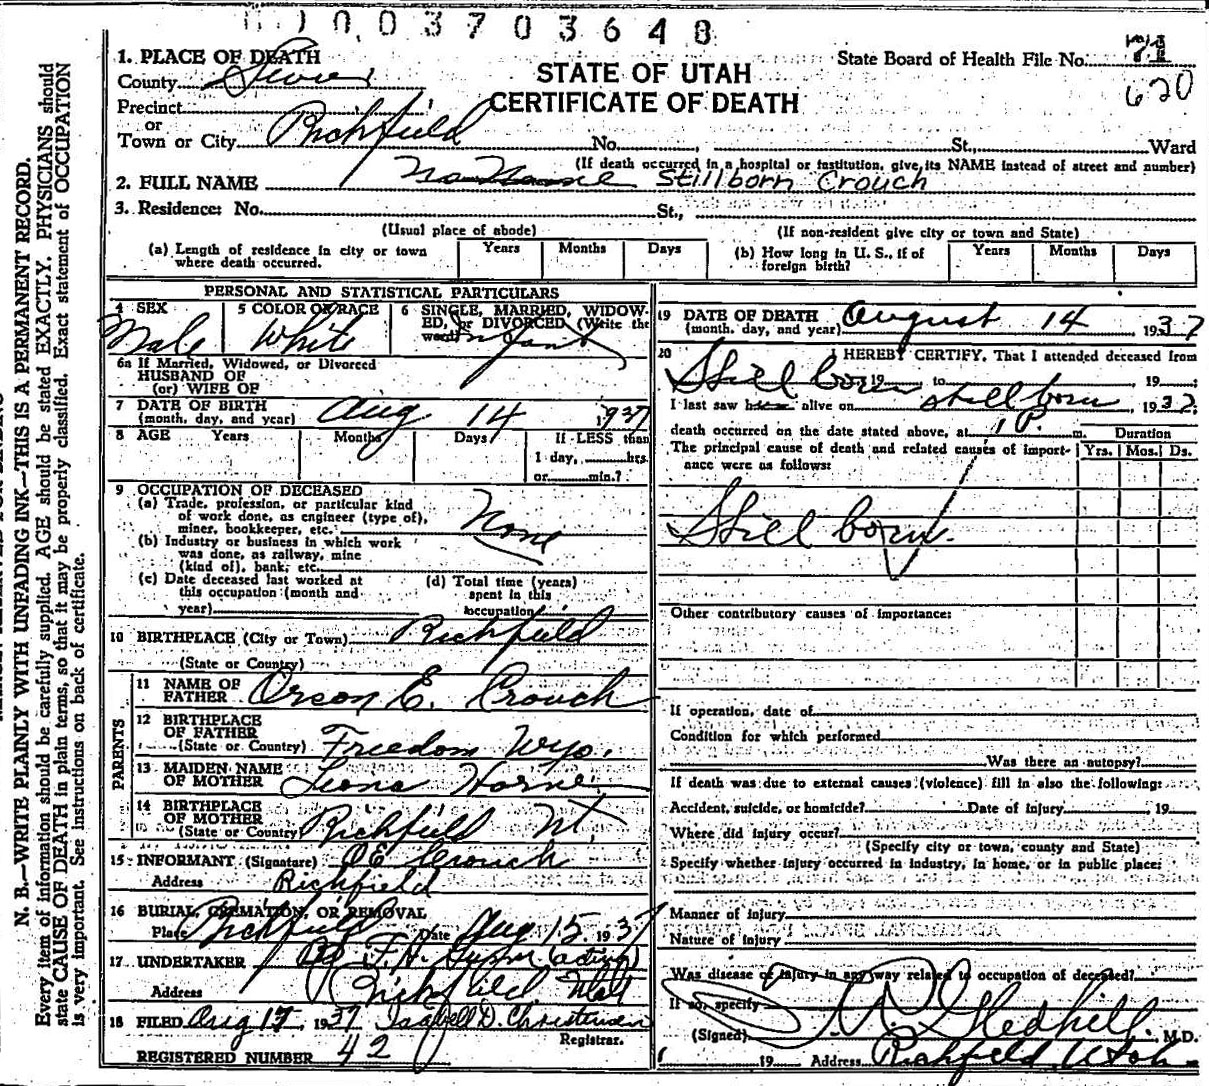 0003703648
1. PLACE OF DEATH
County Sevier
Precinct
or
Town or City Richfield No. St., Ward
STATE OF UTAH
CERTIFICATE OF DEATH
State Board of Health File No. 71
620
(If death occurred in a hospital or institution, give its NAME instead of street and number)
2. FULL NAME No Name Stillborn Crouch
3. Residence: No. St.,
(Usual place of abode) (If non-resident give city or town and State)
(a) Length of residence in city or town where death occurred. Years Months Days (b) How long in U. S., if of foreign birth? Years Months Days
PERSONAL AND STATISTICAL PARTICULARS
4 SEX Male
5 COLOR OR RACE White
6 SINGLE, MARRIED, WIDOWED, or DIVORCED (Write the word) Infant
6a If Married, Widowed, or Divorced
HUSBAND OF
(or) WIFE OF
7 DATE OF BIRTH (month, day, and year) Aug 14 1937
8 AGE Years Months Days If LESS than
1 day, hrs.
or min.?
9 OCCUPATION OF DECEASED
(a) Trade, profession, or particular kind
of work done, as engineer (type of),
miner, bookkeeper, etc. None
(b) Industry or business in which work
was done, as railway, mine
(kind of), bank, etc.
(c) Date deceased last worked at
this occupation (month and
year)
(d) Total time (years)
spent in this
occupation
10 BIRTHPLACE (City or Town) Richfield
(State or Country)
PARENTS
11 NAME OF FATHER Orson E. Crouch
12 BIRTHPLACE OF FATHER (State or Country) Freedom Wyo.
13 MAIDEN NAME OF MOTHER Horne
14 BIRTHPLACE OF MOTHER (State or Country) Richfield Ut.
15 INFORMANT (Signature) O E Crouch
Address Richfield
16 BURIAL, CREMATION, OR REMOVAL
Place Richfield Date Aug 15, 1937
17 UNDERTAKER
Address Richfield Utah
18 FILED Aug 17 1937 D. Christensen
Registrar.
REGISTERED NUMBER 42
19 DATE OF DEATH (month, day, and year) August 14 1937
20 I HEREBY CERTIFY, That I attended deceased from
Still born 19 to , 19
I last saw h alive on still born, 1937
death occurred on the date stated above, at 1 P. m.
The principal cause of death and related causes of importance were as follows:
Duration
Yrs. Mos. Ds.
Still born.
Other contributory causes of importance:
If operation, date of
Condition for which performed
Was there an autopsy?
If death was due to external causes (violence) fill in also the following:
Accident, suicide, or homicide? Date of injury 19
Where did injury occur?
(Specify city or town, county and State)
Specify whether injury occurred in industry, in home, or in public place:
Manner of injury
Nature of injury
Was disease or injury in any way related to occupation of deceased?
If so, specify
(Signed) Gledhill, M.D.
19 Address Richfield Utah
N. B.—WRITE PLAINLY WITH UNFADING INK—THIS IS A PERMANENT RECORD.
Every item of information should be carefully supplied. AGE should be stated EXACTLY. PHYSICIANS should
state CAUSE OF DEATH in plain terms, so that it may be properly classified. Exact statement of OCCUPATION
is very important. See instructions on back of certificate.